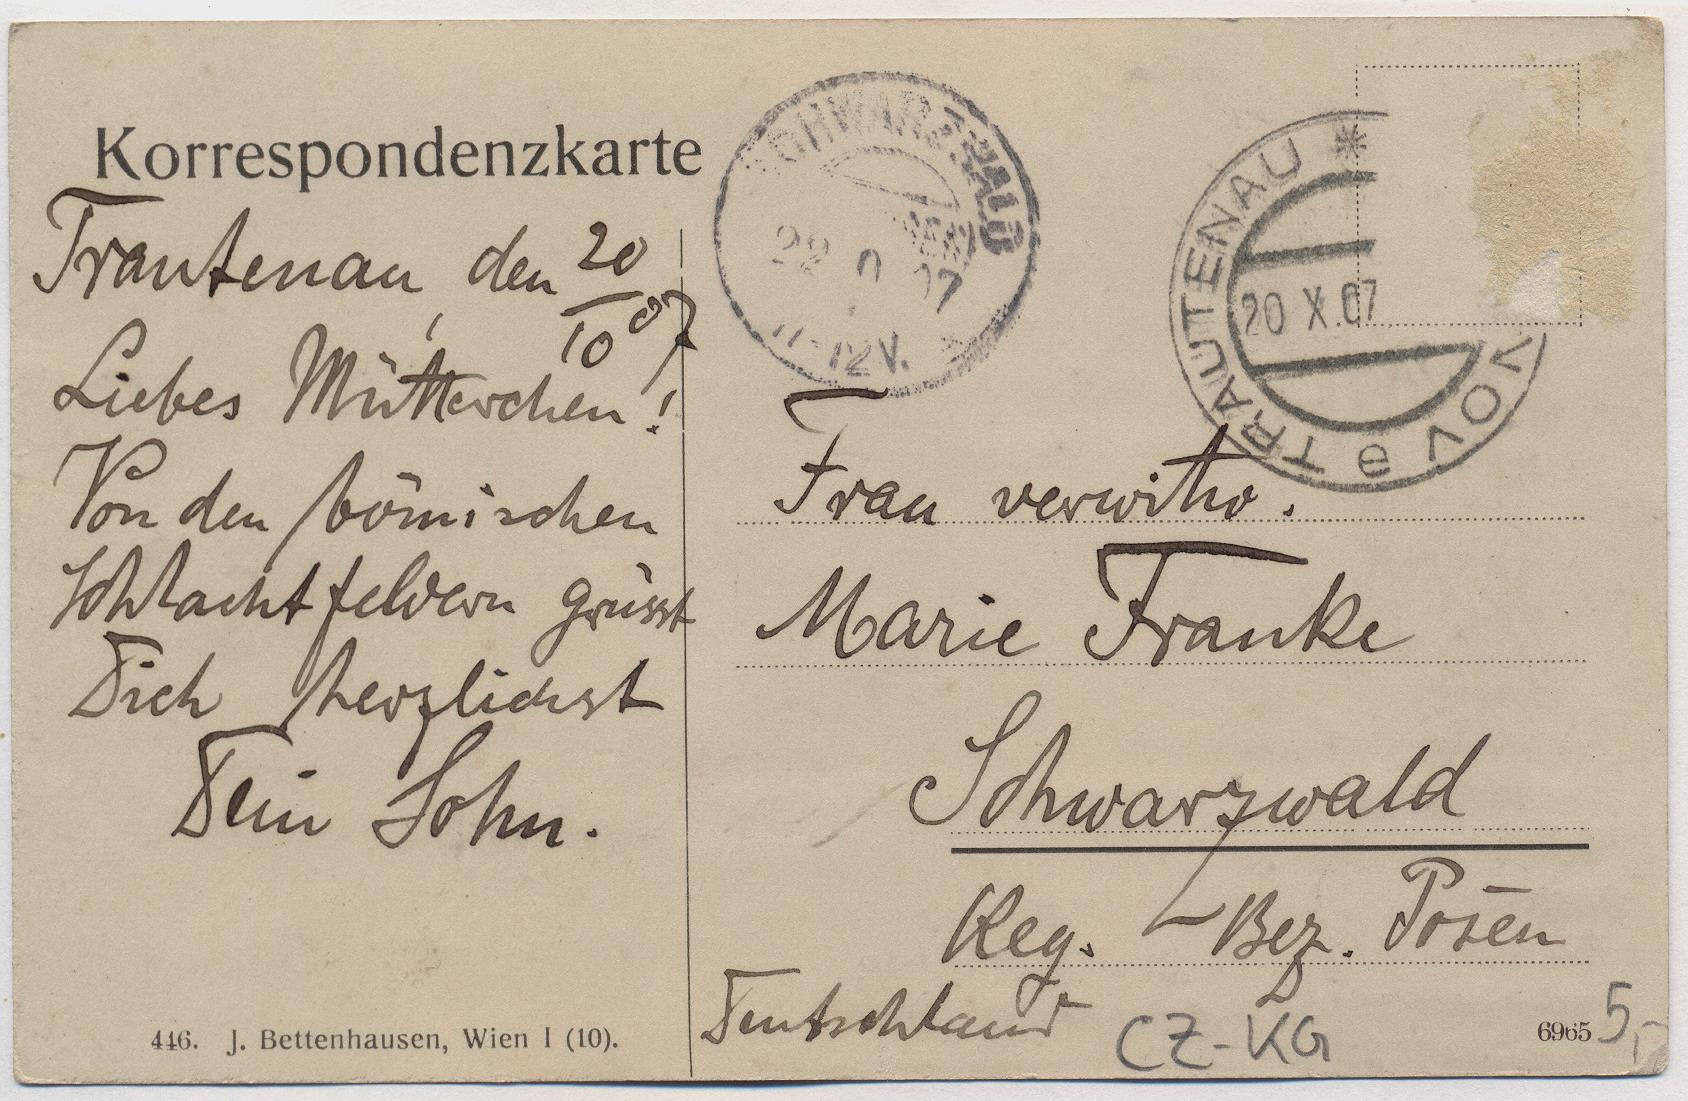 Korrespondenzkarte
Trautenau, den 20/10 07
Liebes Mütterchen!
Von den bömischen
Schlachtfeldern grüsst
Dich herzlichst
Dein Sohn.
446. J. Bettenhausen, Wien I (10).
SCHWARZWALD
22 07
11-12V.
TRAUTENAU * TRUTNOV e
20 X.07
Frau verwitw.
Marie Franke
Schwarzwald
Reg.-Bez. Posen
Deutschland
CZ-KG
6965
5,-